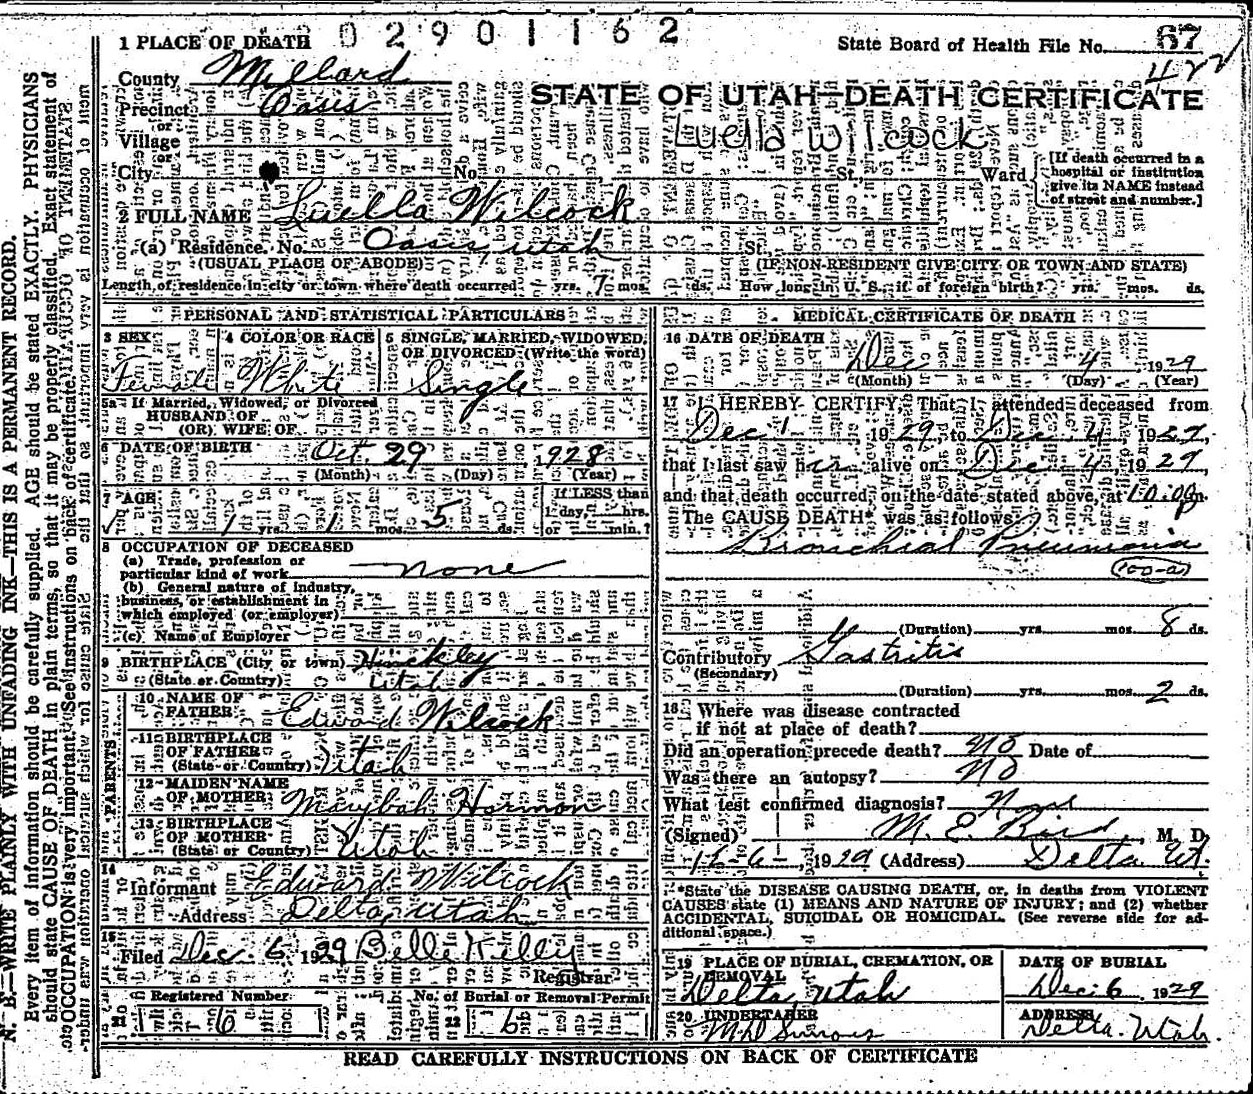 02901162
State Board of Health File No. 67
422
1 PLACE OF DEATH
County Millard
STATE OF UTAH—DEATH CERTIFICATE
Precinct Oasis
Luella Wilcock
or
Village
or
City No. St. Ward
[If death occurred in a hospital or institution give its NAME instead of street and number.]
2 FULL NAME Luella Wilcock
(a) Residence. No. Oasis, Utah St.
(USUAL PLACE OF ABODE) (IF NON-RESIDENT GIVE CITY OR TOWN AND STATE)
Length of residence in city or town where death occurred yrs. 7 mos. ds. How long in U. S., if of foreign birth? yrs. mos. ds.
PERSONAL AND STATISTICAL PARTICULARS
3 SEX Female
4 COLOR OR RACE White
5 SINGLE, MARRIED, WIDOWED, OR DIVORCED (Write the word) Single
5a If Married, Widowed, or Divorced
HUSBAND OF
(OR) WIFE OF
6 DATE OF BIRTH Oct. 29 1928
(Month) (Day) (Year)
7 AGE 1 yrs. 1 mos. 5 ds.
If LESS than 1 day, hrs. or min.?
8 OCCUPATION OF DECEASED
(a) Trade, profession or particular kind of work none
(b) General nature of industry, business, or establishment in which employed (or employer)
(c) Name of Employer
9 BIRTHPLACE (City or town) Hinckley
(State or Country) Utah
PARENTS
10 NAME OF FATHER Edward Wilcock
11 BIRTHPLACE OF FATHER (State or Country) Utah
12 MAIDEN NAME OF MOTHER Maybah Harmon
13 BIRTHPLACE OF MOTHER (State or Country) Utah
14 Informant Edward Wilcock
Address Delta, Utah
15 Filed Dec. 6, 1929 Belle Kelly
Registrar
Registered Number 6
No. of Burial or Removal Permit 6
MEDICAL CERTIFICATE OF DEATH
16 DATE OF DEATH Dec 4 1929
(Month) (Day) (Year)
17 I HEREBY CERTIFY, That I attended deceased from
Dec 1 1929, to Dec. 4, 1929,
that I last saw her alive on Dec 4, 1929,
and that death occurred, on the date stated above, at 10:00 p m.
The CAUSE DEATH* was as follows:
Bronchial Pneumonia
(100-a)
(Duration) yrs. mos. 8 ds.
Contributory Gastritis
(Secondary)
(Duration) yrs. mos. 2 ds.
18 Where was disease contracted
if not at place of death?
Did an operation precede death? No Date of
Was there an autopsy? No
What test confirmed diagnosis?
(Signed) M. E. Bird, M. D.
12-6-, 1929 (Address) Delta Ut.
*State the DISEASE CAUSING DEATH, or, in deaths from VIOLENT
CAUSES state (1) MEANS AND NATURE OF INJURY; and (2) whether
ACCIDENTAL, SUICIDAL OR HOMICIDAL. (See reverse side for ad-
ditional space.)
19 PLACE OF BURIAL, CREMATION, OR REMOVAL
Delta, Utah
DATE OF BURIAL
Dec. 6, 1929
20 UNDERTAKER
ADDRESS
Delta, Utah
READ CAREFULLY INSTRUCTIONS ON BACK OF CERTIFICATE
N. B.—WRITE PLAINLY WITH UNFADING INK—THIS IS A PERMANENT RECORD.
Every item of information should be carefully supplied. AGE should be stated EXACTLY. PHYSICIANS
should state CAUSE OF DEATH in plain terms, so that it may be properly classified. Exact statement of
OCCUPATION is very important. See instructions on back of certificate.